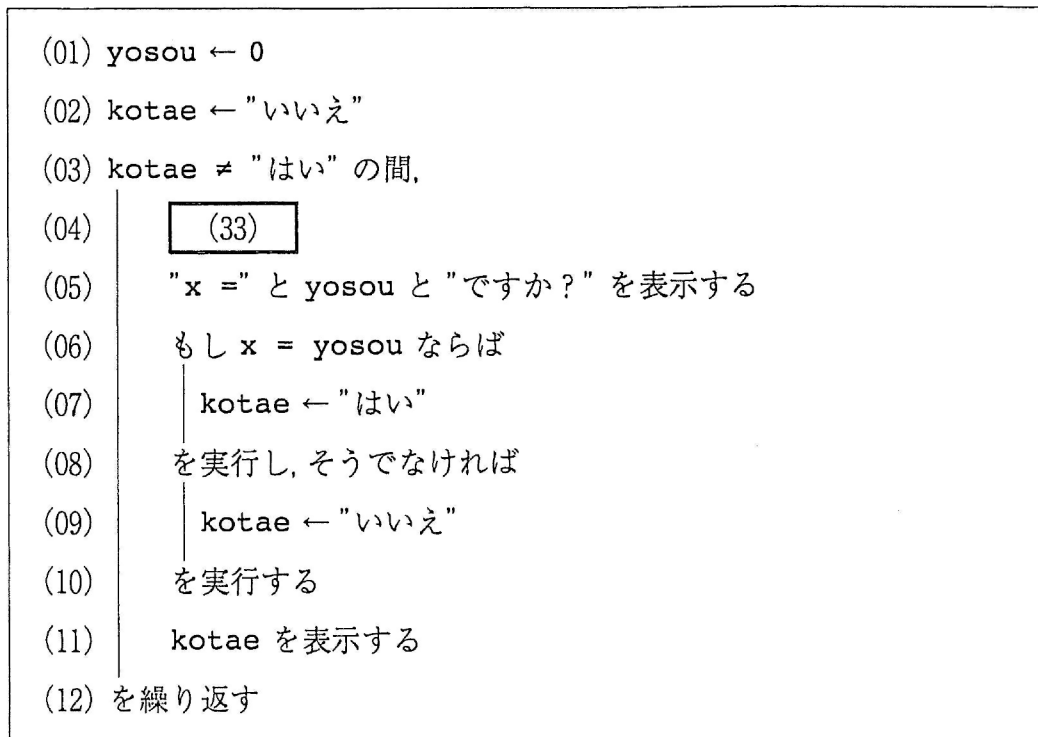 (01) yosou ← 0
(02) kotae ← "いいえ"
(03) kotae ≠ "はい" の間,
(04) (33)
(05) "x =" と yosou と "ですか?" を表示する
(06) もし x = yosou ならば
(07) kotae ← "はい"
(08) を実行し, そうでなければ
(09) kotae ← "いいえ"
(10) を実行する
(11) kotae を表示する
(12) を繰り返す